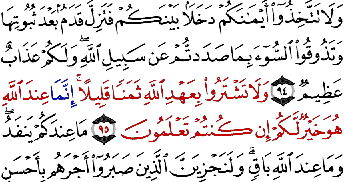 وَلَا تَتَّخِذُوٓا۟ أَيْمَٰنَكُمْ دَخَلًۢا بَيْنَكُمْ فَتَزِلَّ قَدَمٌۢ بَعْدَ ثُبُوتِهَا
وَتَذُوقُوا۟ ٱلسُّوٓءَ بِمَا صَدَدتُّمْ عَن سَبِيلِ ٱللَّهِ ۖ وَلَكُمْ عَذَابٌ
عَظِيمٌ ٩٤ وَلَا تَشْتَرُوا۟ بِعَهْدِ ٱللَّهِ ثَمَنًا قَلِيلًا ۚ إِنَّمَا عِندَ ٱللَّهِ
هُوَ خَيْرٌ لَّكُمْ إِن كُنتُمْ تَعْلَمُونَ ٩٥ مَا عِندَكُمْ يَنفَدُ ۖ
وَمَا عِندَ ٱللَّهِ بَاقٍ ۗ وَلَنَجْزِيَنَّ ٱلَّذِينَ صَبَرُوٓا۟ أَجْرَهُم بِأَحْسَنِ